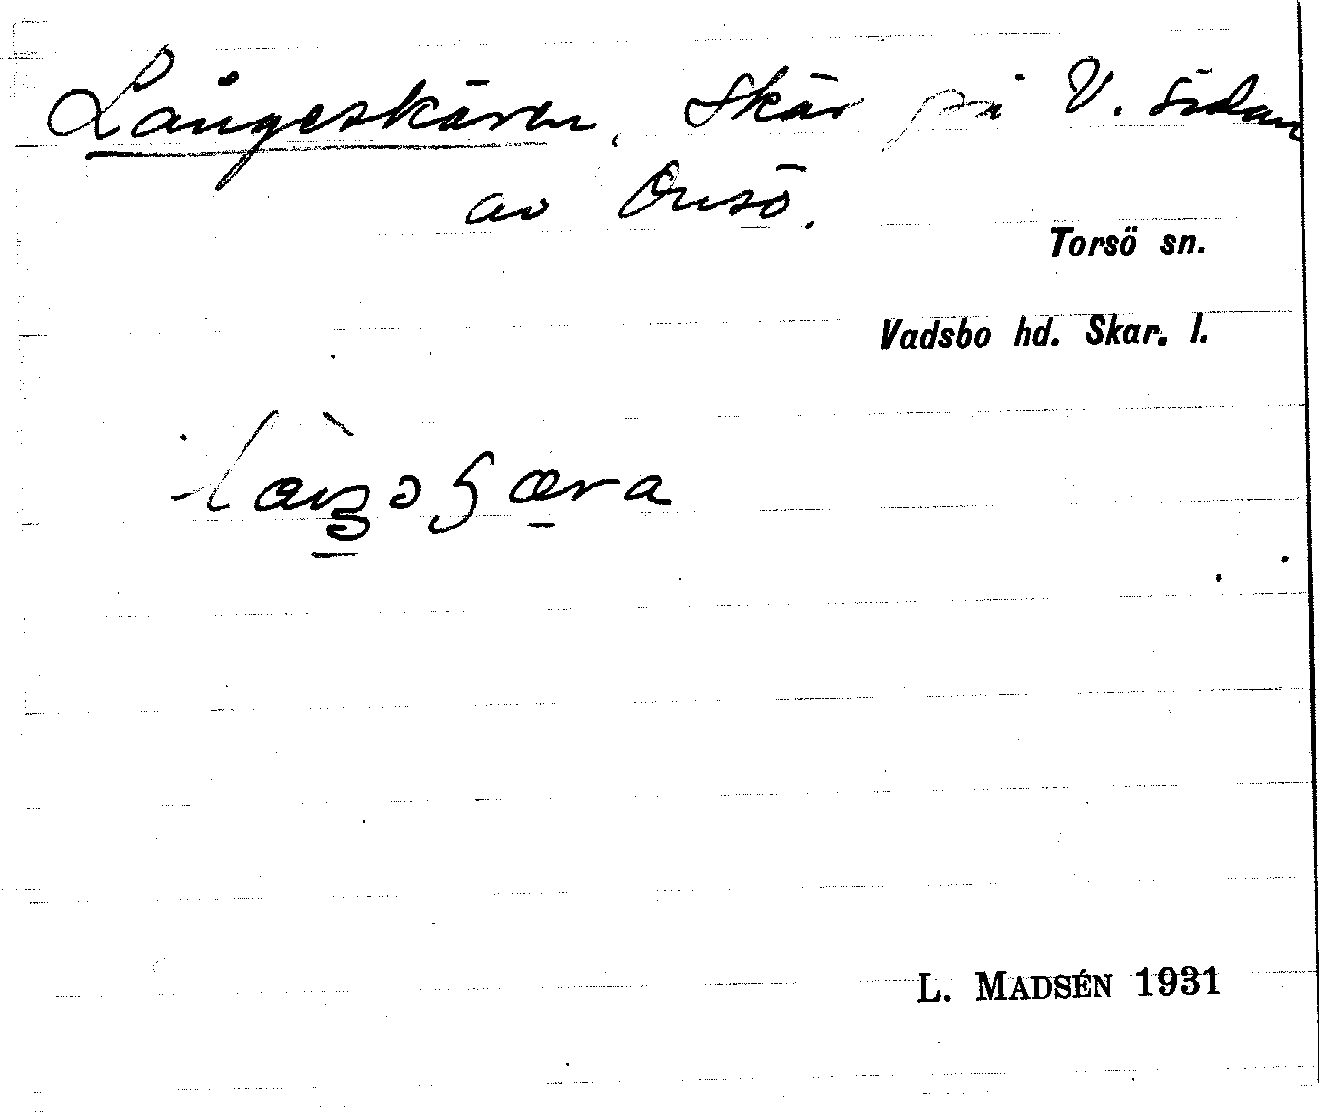 Långeskären, Skär på V. sidan
av Onsö.
Torsö sn.
Vadsbo hd. Skar. l.
L. MADSÉN 1931